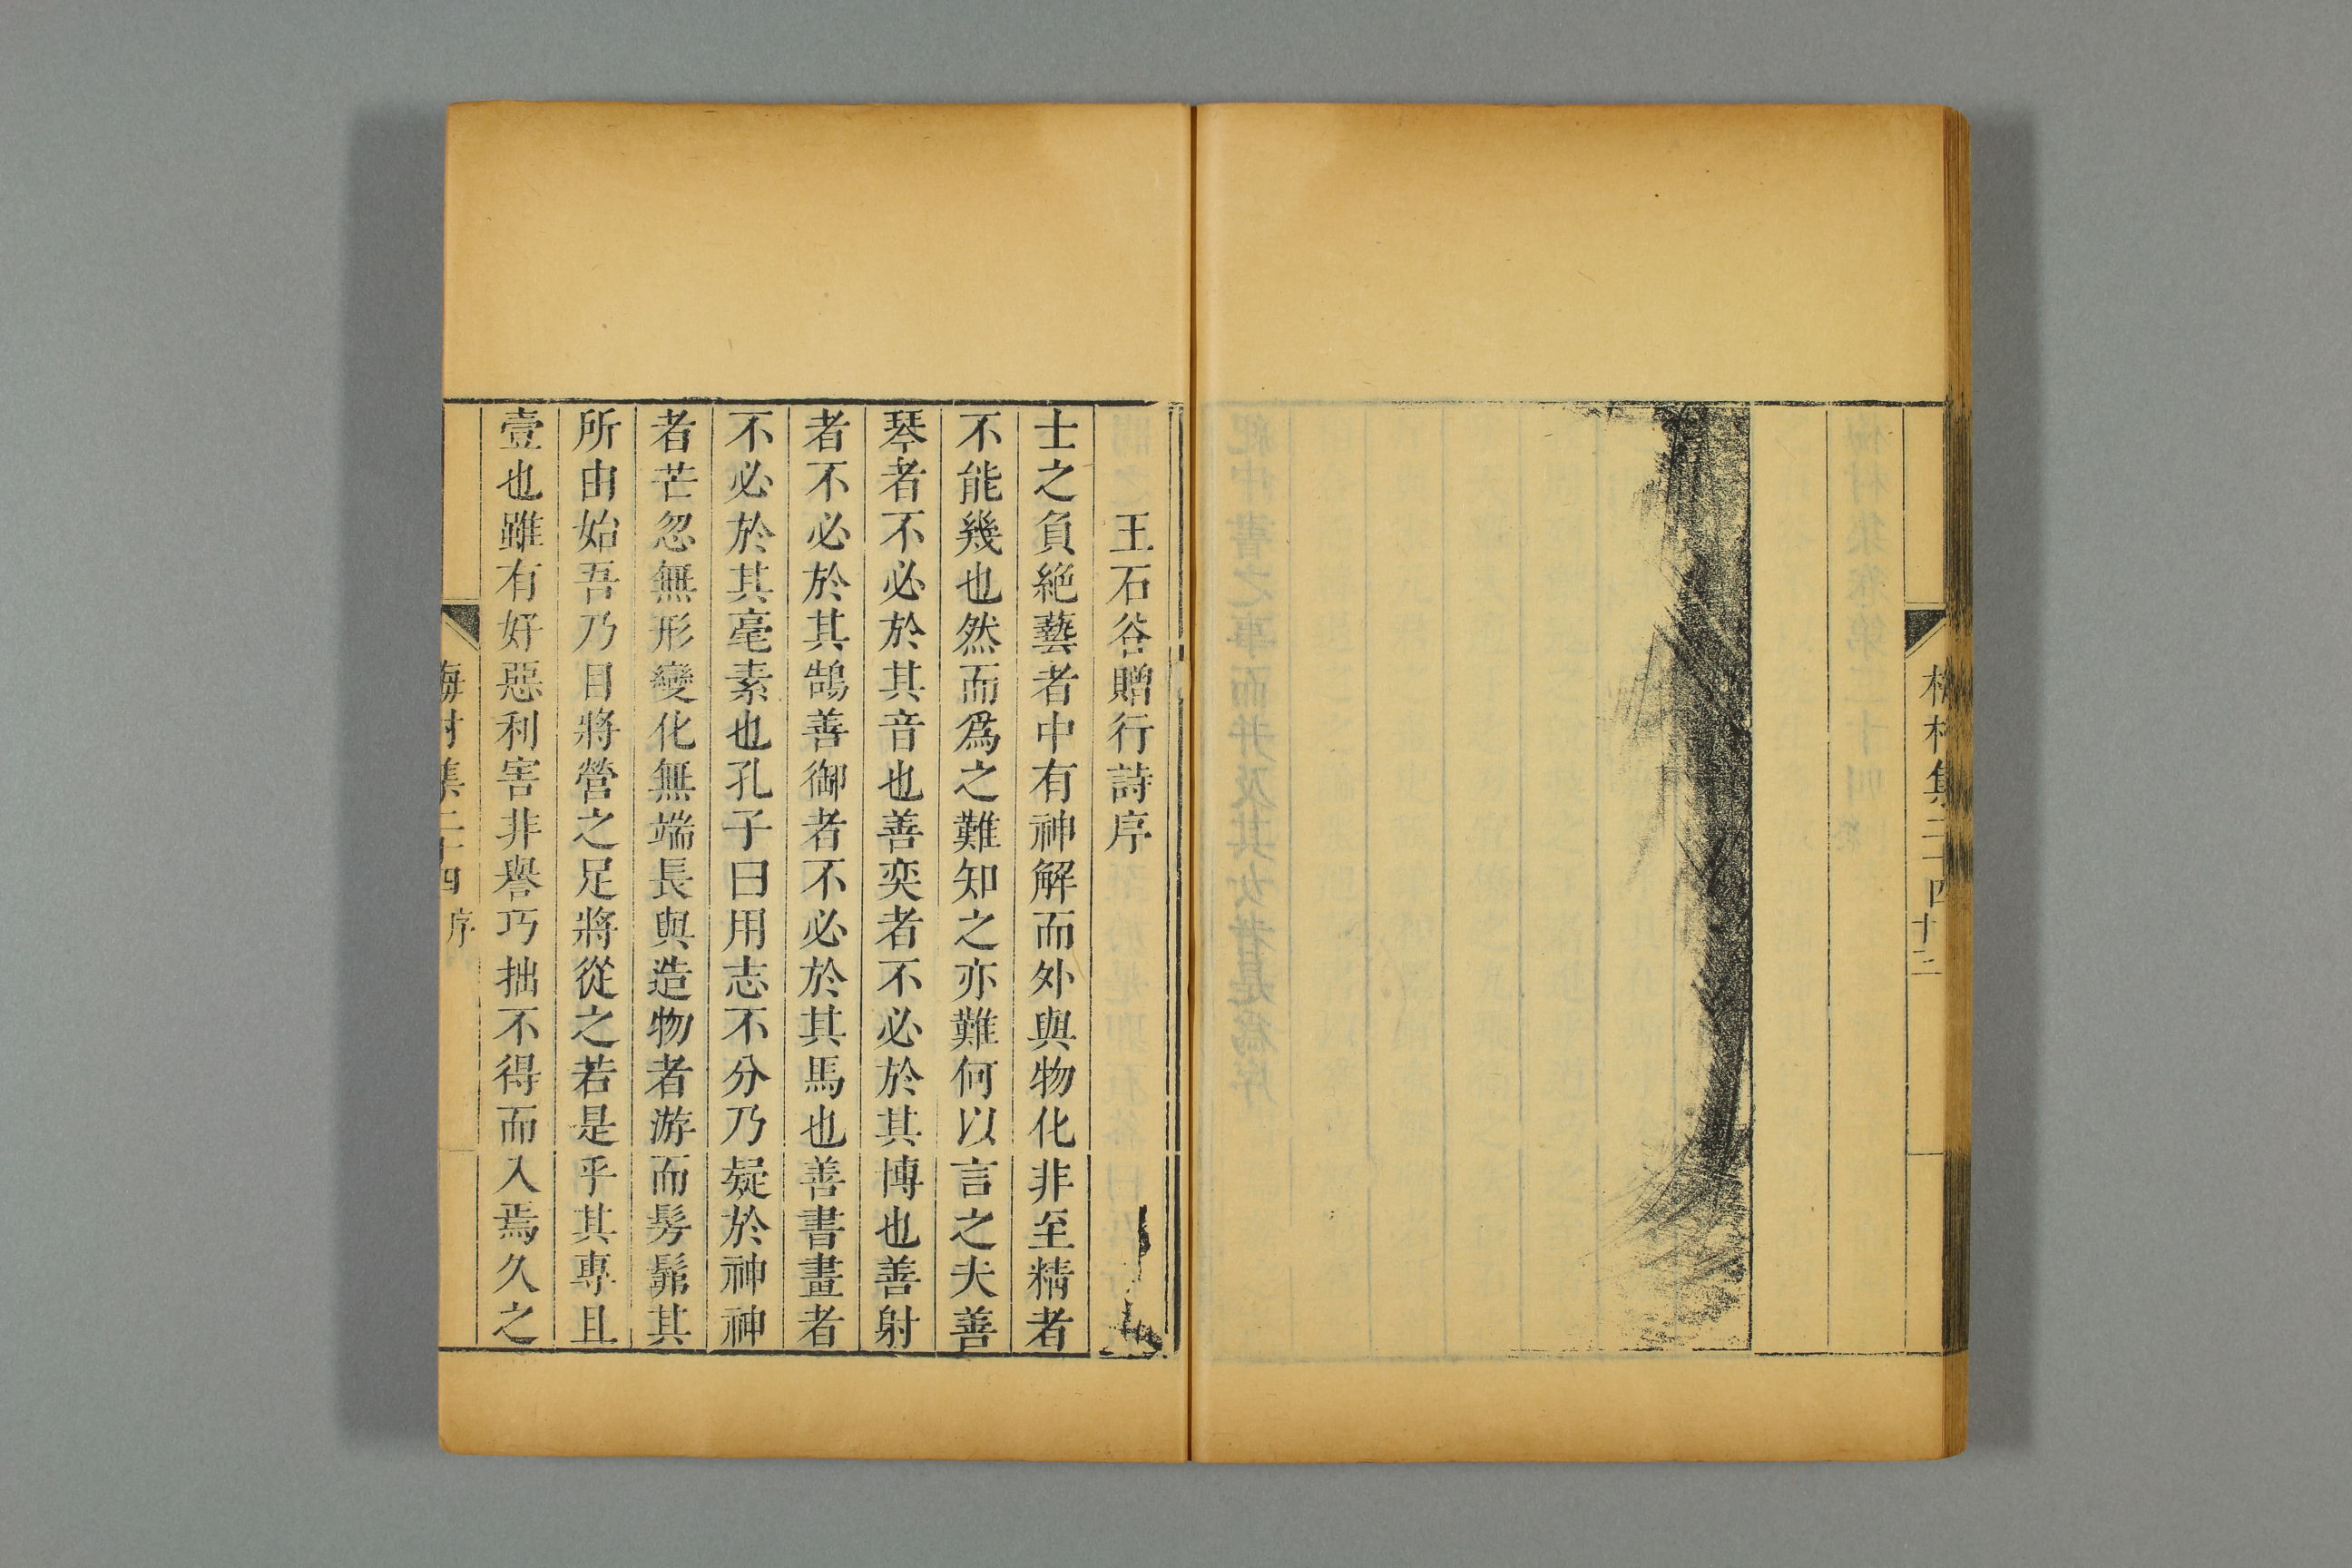 梅村集二十四
十三
王石谷贈行詩序
士之負絶藝者中有神解而外與物化非至精者
不能幾也然而爲之難知之亦難何以言之夫善
琴者不必於其音也善奕者不必於其博也善射
者不必於其鵠善御者不必於其馬也善書畫者
不必於其毫素也孔子曰用志不分乃疑於神神
者芒忽無形變化無端長與造物者游而髣髴其
所由始吾乃目將營之足將從之若是乎其專且
壹也雖有好惡利害非譽巧拙不得而入焉久之
梅村集二十四 序